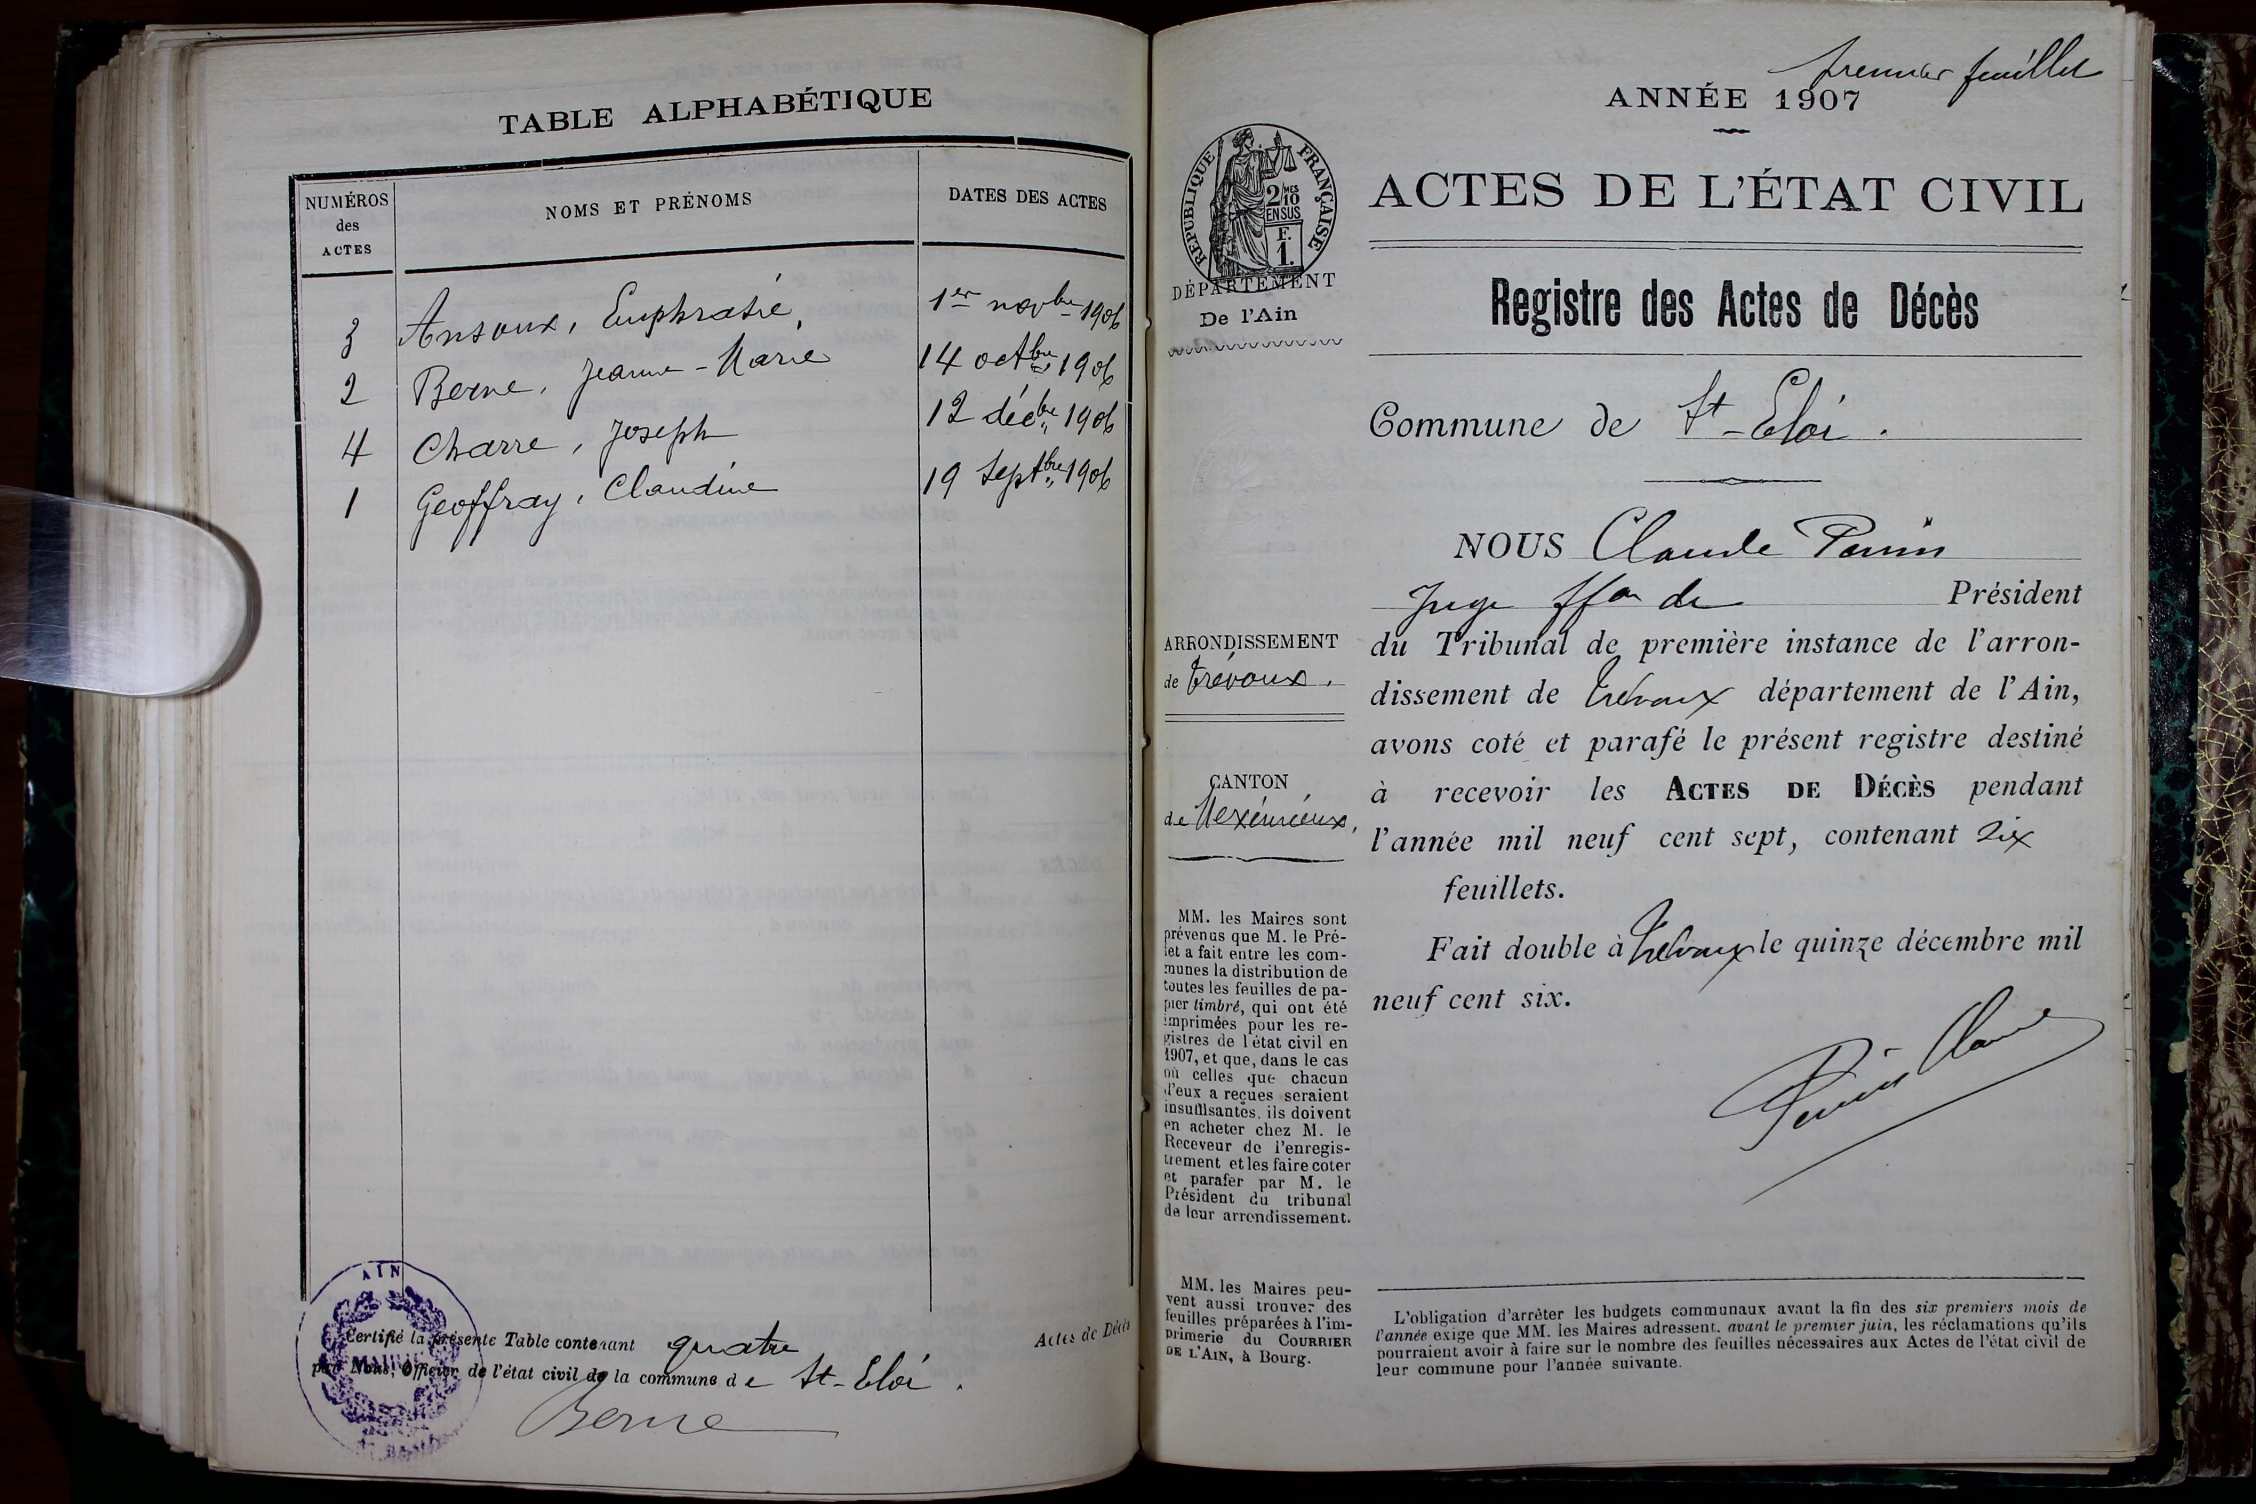 TABLE ALPHABÉTIQUE
NUMÉROS des ACTES
NOMS ET PRÉNOMS
DATES DES ACTES
3 Ansoux, Euphrasie, 1er novbre 1906
2 Berne, Jeanne-Marie 14 octbre 1906
4 Charre, Joseph 12 décbre 1906
1 Geoffray, Claudine 19 septbre 1906
AIN
MAIRIE
Certifié la présente Table contenant quatre Actes de Décès
par Nous, Officier de l'état civil de la commune de St-Eloi.
Berne
premier feuillet
ANNÉE 1907
RÉPUBLIQUE FRANÇAISE
2/10 MES
EN SUS
F.
1.
DÉPARTEMENT
De l'Ain
ACTES DE L'ÉTAT CIVIL
Registre des Actes de Décès
Commune de St-Eloi.
NOUS Claude Perrin
Juge ffon de Président
ARRONDISSEMENT
de Trévoux.
du Tribunal de première instance de l'arron-
dissement de Trévoux département de l'Ain,
avons coté et parafé le présent registre destiné
à recevoir les ACTES DE DÉCÈS pendant
l'année mil neuf cent sept, contenant six
feuillets.
Fait double à Trévoux le quinze décembre mil
neuf cent six.
Perrin Claude
CANTON
de Meximieux,
MM. les Maires sont
prévenus que M. le Pré-
fet a fait entre les com-
munes la distribution de
toutes les feuilles de pa-
pier timbré, qui ont été
imprimées pour les re-
gistres de l'état civil en
1907, et que, dans le cas
où celles que chacun
d'eux a reçues seraient
insuffisantes, ils doivent
en acheter chez M. le
Receveur de l'enregis-
trement et les faire coter
et parafer par M. le
Président du tribunal
de leur arrondissement.
MM. les Maires peu-
vent aussi trouver des
feuilles préparées à l'im-
primerie du COURRIER
DE L'AIN, à Bourg.
L'obligation d'arrêter les budgets communaux avant la fin des six premiers mois de
l'année exige que MM. les Maires adressent, avant le premier juin, les réclamations qu'ils
pourraient avoir à faire sur le nombre des feuilles nécessaires aux Actes de l'état civil de
leur commune pour l'année suivante.